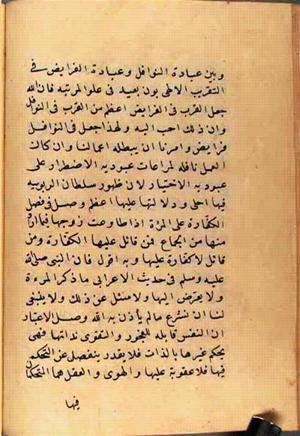 وبين عبادة النوافل وعبادة الفرايض في
التقريب الالهي بون بعيد في علو المرتبه فان الله
جعل القرب في الفرايض اعظم من القرب في النوافل
وان ذلك احب اليه ولهذا جعل في النوافل
فرايض وامرنا ان لا يبطله اعمالنا وان كان
العمل نافله لمراعات عبوديه الاضطرار على
عبوديه الاختيار لان ظهور سلطان الربوبيه
فيها اجلى ودلالتها عليها اعظم وصل في فصل
الكفارة على المرة اذا طاوعت زوجها فيما اراده
منها من الجماع فمن قائل عليها الكفارة ومن
قائل لا كفارة عليها وبه اقول فان النبي صلى الله
عليه وسلم في حديث الاعرابي ما ذكر المرءة
ولا تعرض اليها ولا سئل عن ذلك ولا ينبغى
لنا ان نشرع ما لم ياذن به الله وصل الاعتبار
ان النفس قابله للفجور والتقوى بذاتها فهي
بحكم غيرها بالذات فلا تقدر ينفصل عن التحكم
فيها فلا عقوبة عليها والهوى والعقل هما المتحكمان
فيها